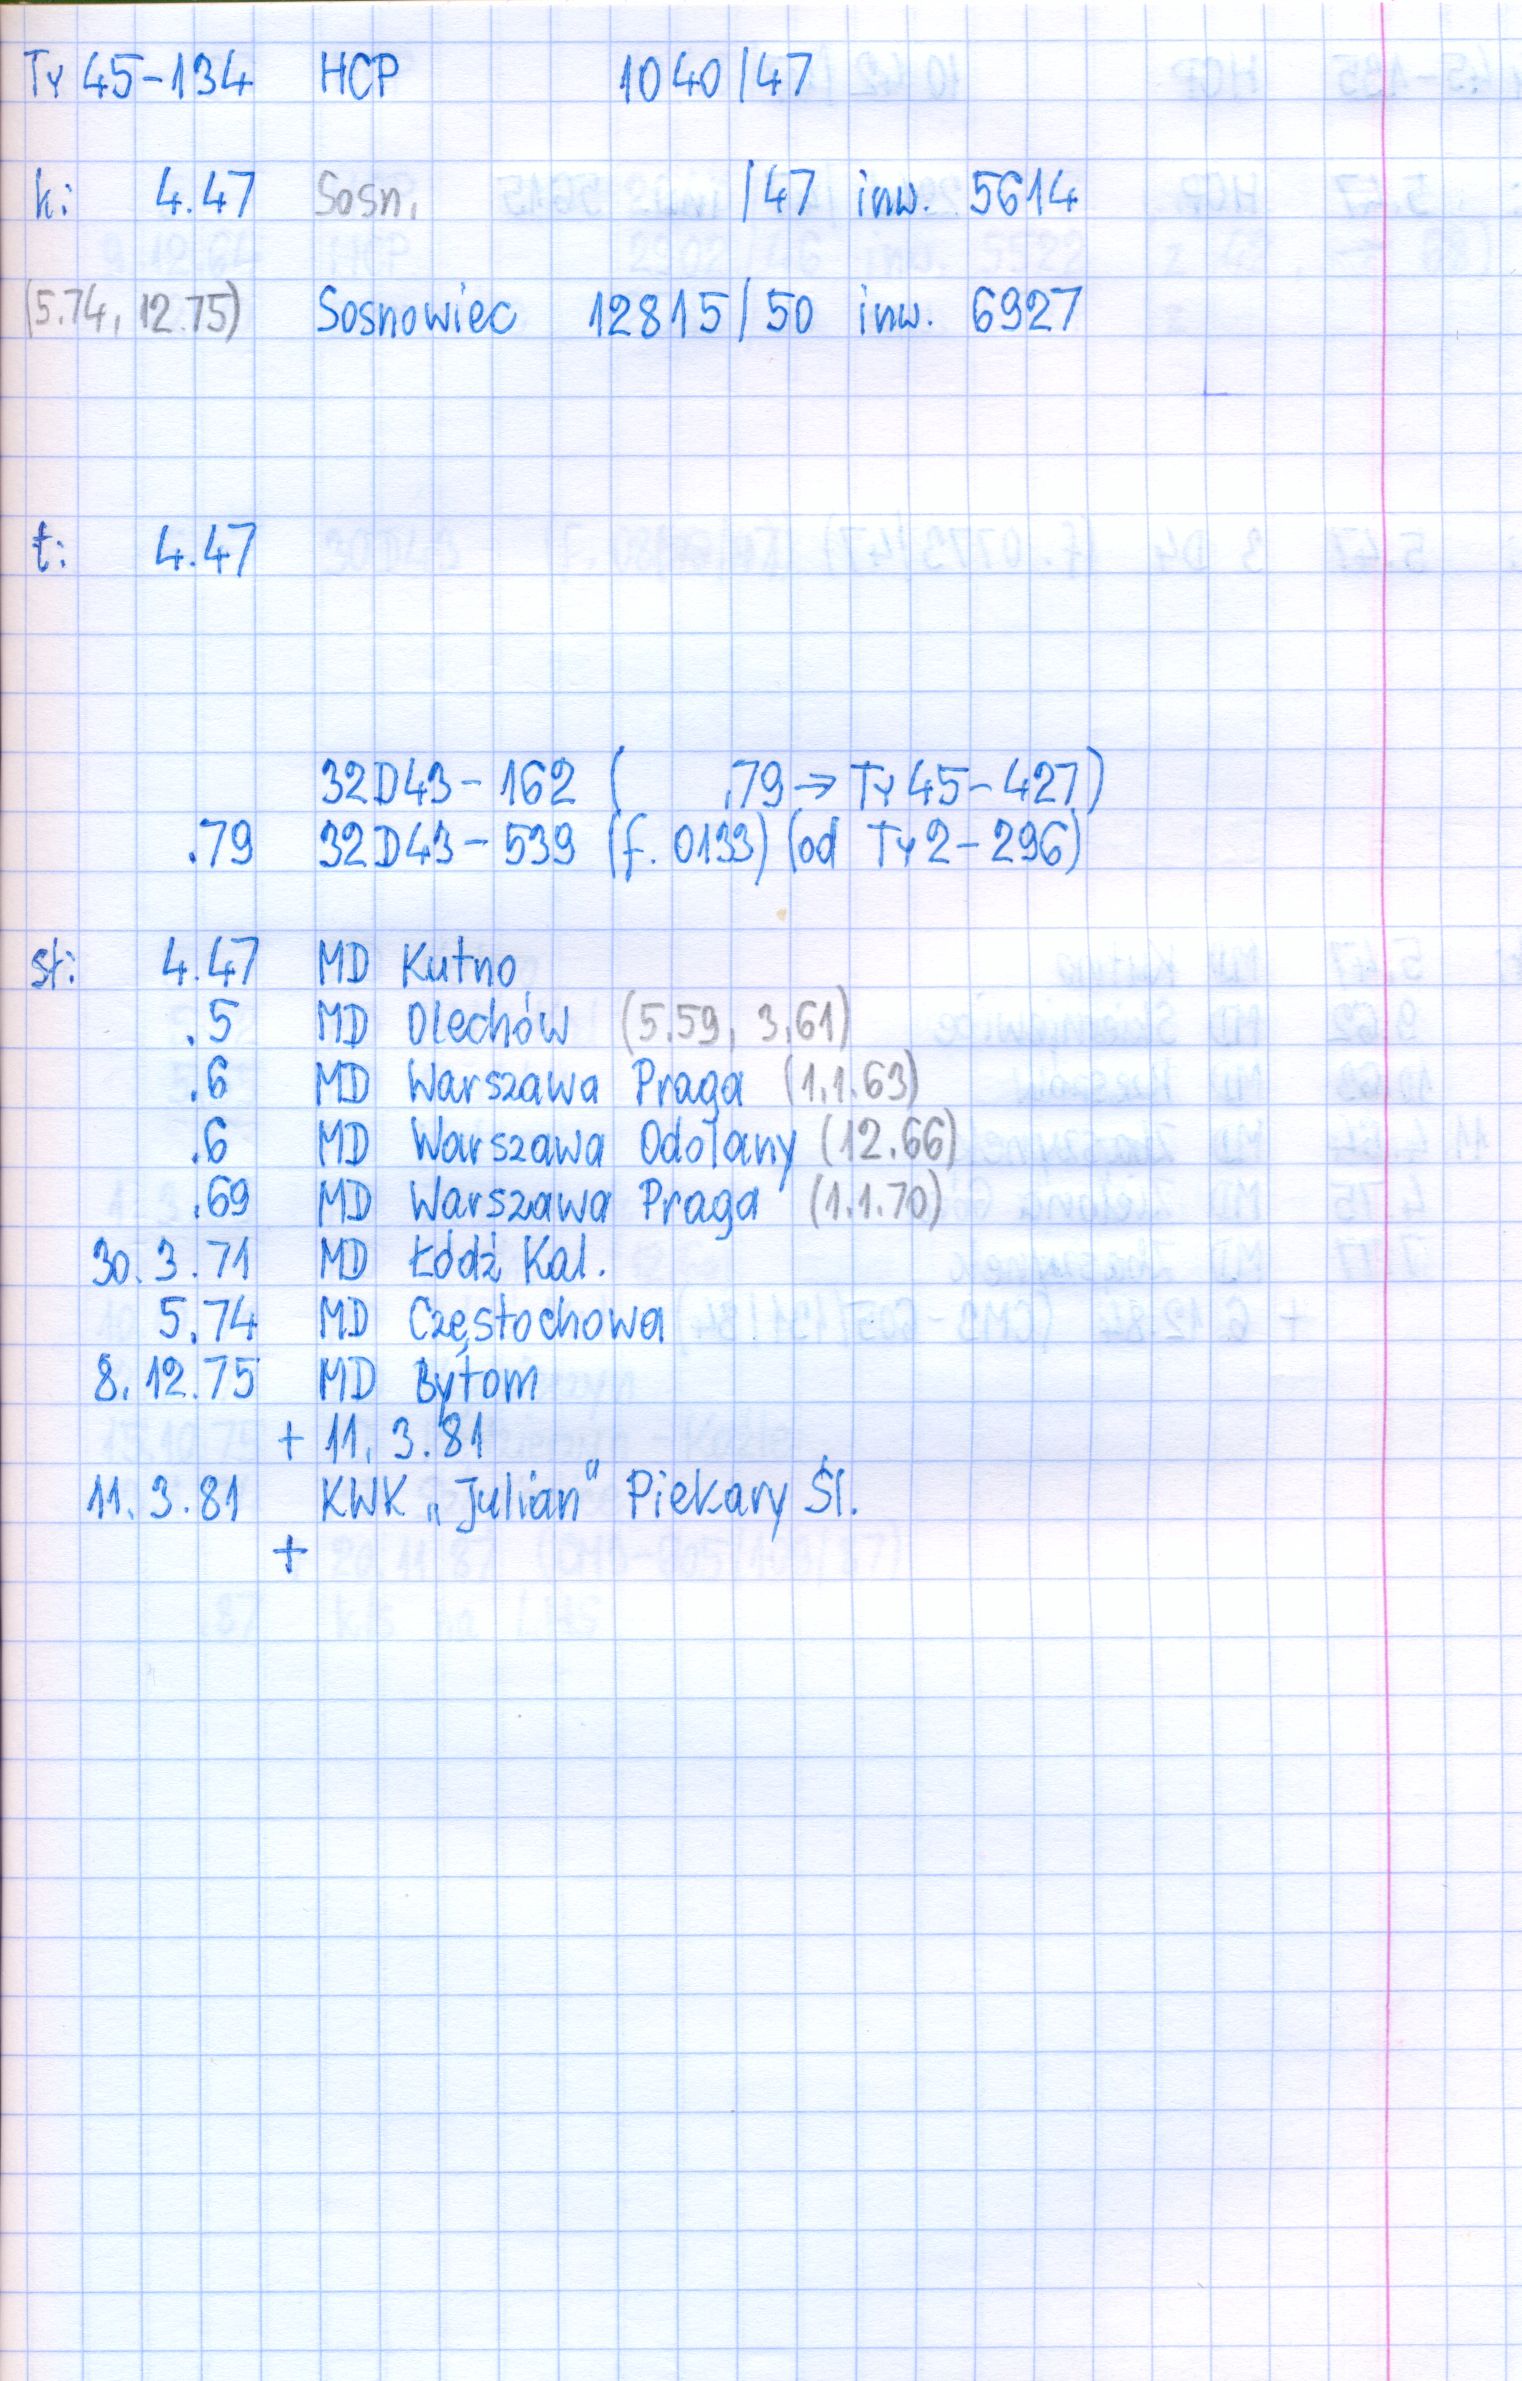 Ty 45-134 HCP 1040/47
k: 4.47 Sosn. /47 inw. 5614
(5.74, 12.75) Sosnowiec 12815/50 inw. 6927
t: 4.47
32D43-162 ( .79 → Ty 45-427)
.79 32D43-539 (f. 0133) (od Ty 2-296)
st: 4.47 MD Kutno
.5 MD Olechów (5.59, 3.61)
.6 MD Warszawa Praga (1.1.63)
.6 MD Warszawa Odolany (12.66)
.69 MD Warszawa Praga (1.1.70)
30.3.71 MD Łódź Kal.
5.74 MD Częstochowa
8.12.75 MD Bytom
+ 11.3.81
11.3.81 KWK „Julian" Piekary Śl.
+